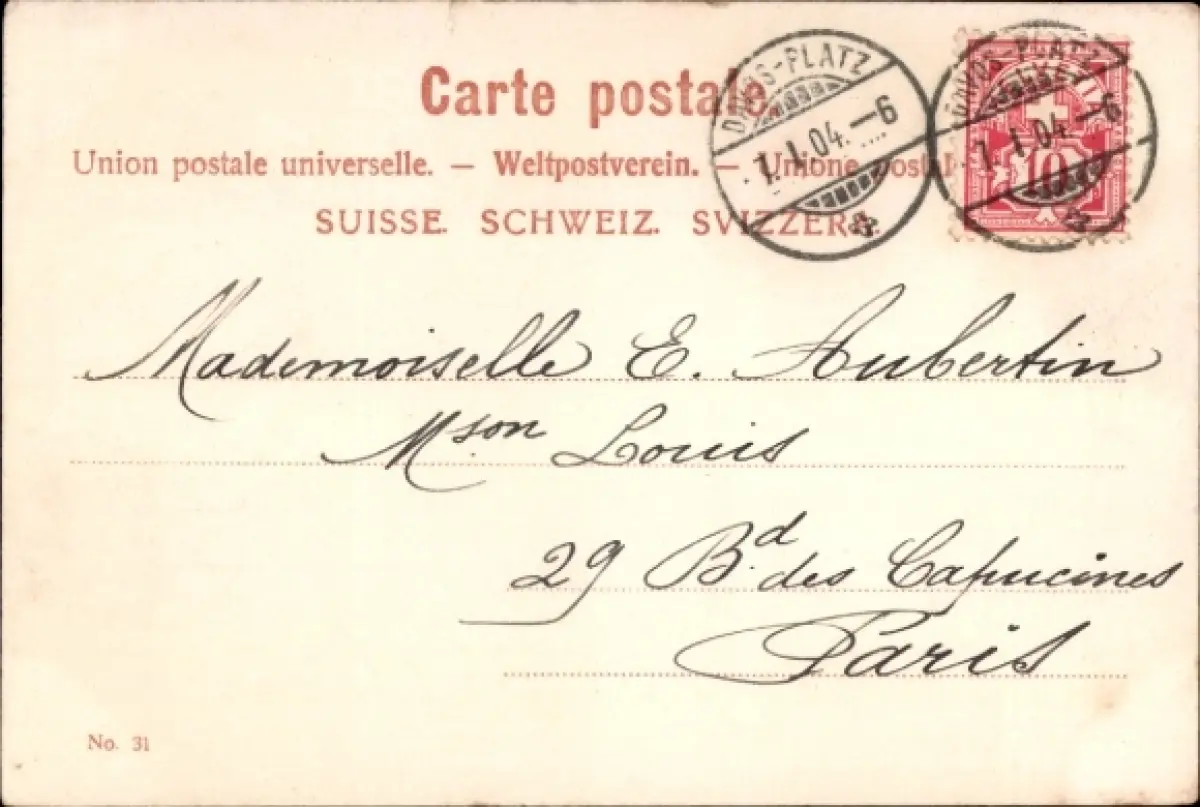 Carte postale
Union postale universelle. — Weltpostverein. — Unione postal
SUISSE. SCHWEIZ. SVIZZERA.
DAVOS-PLATZ
1.I.04.—6
DAVOS-PLATZ
1.I.04—6
10
Mademoiselle E. Aubertin
Mson Louis
29 Bd. des Capucines
Paris
No. 31